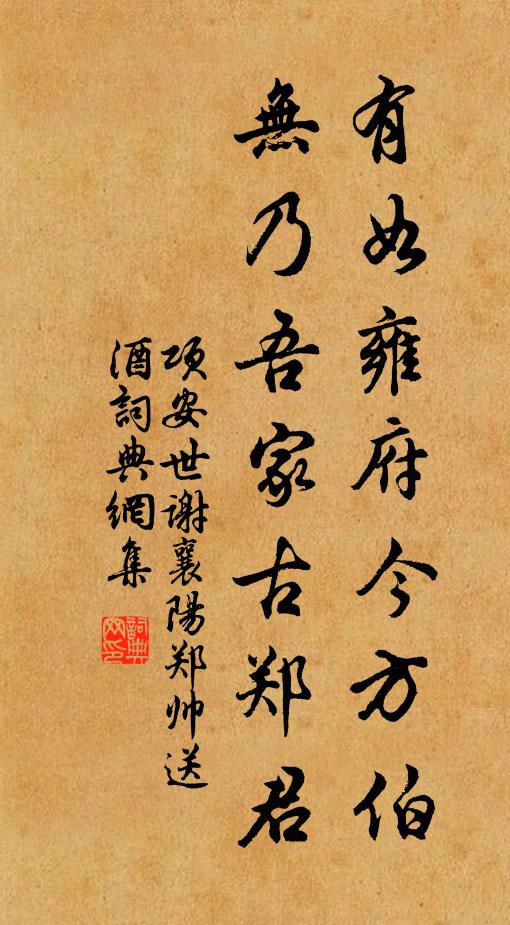 有如雍府今方伯
無乃吾家古郑君
项安世谢襄陽郑帅送
酒詞典網集
詞典
网印